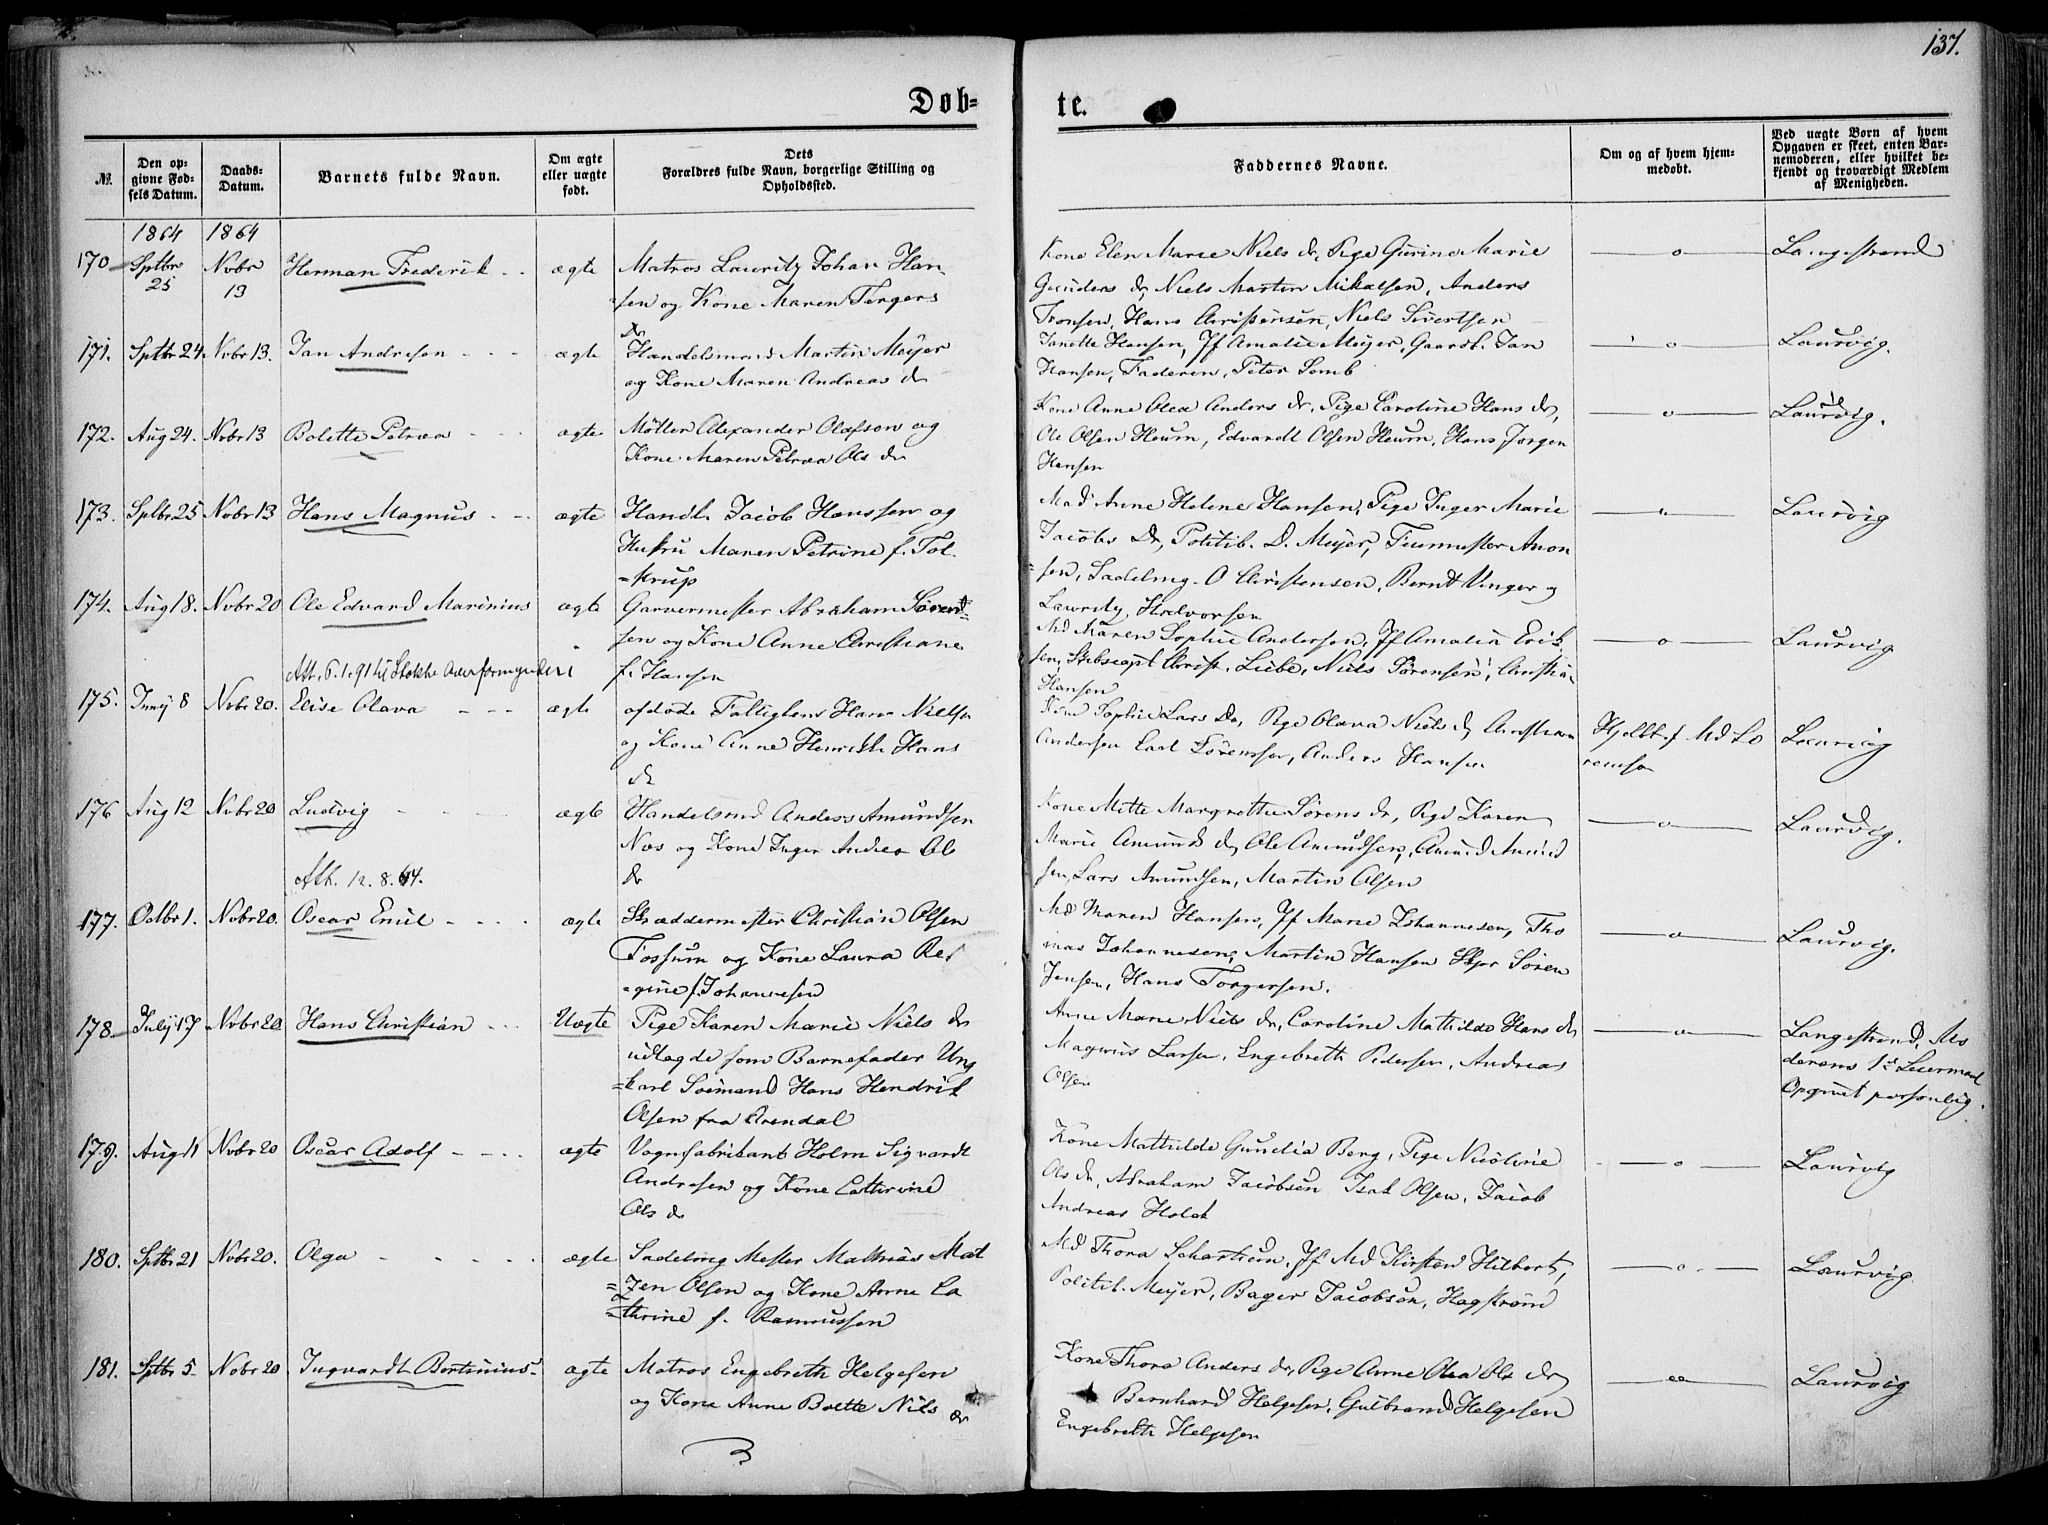 137.
Døb=
te.
№.
Den op=
givne Fød=
sels Datum.
Daabs=
Datum.
Barnets fulde Navn.
Om ægte
eller uægte
født.
Dets
Forældres fulde Navn, borgerlige Stilling og
Opholdssted.
Faddernes Navne.
Om og af hvem hjem=
medøbt.
Ved uægte Børn af hvem
Opgaven er skeet, enten Bar=
nemoderen, eller hvilket be=
kjendt og troværdigt Medlem
af Menigheden.
1864 1864
170 Sptbr 25 Nvbr 13 Herman Frederik ægte
Matros Lauritz Johan Han=
sen og Kone Maren Torgers
dr
Kone Elen Marie Niels dr, Pige Gurine Marie
Gunders dr, Niels Martin Mikalsen, Anders
Tronsen, Hans Christensen, Niels Sivertsen
o Langestrand
171. Sptbr 24 Nvbr 13. Jan Andresen ægte
Handelsmand Martin Meyer
og Kone Maren Andreas dr
Janette Hansen, Jf Amalie Meyer, Gaardb. Jan
Hansen, Faderen, Peter Somb
o Laurvig.
172. Aug 24. Nvbr 13 Bolette Petrea ægte
Møller Alexander Olafson og
Kone Maren Petrea Ols dr
Kone Anne Olea Anders dr, Pige Caroline Hans dr,
Ole Olsen Heum, Edvardt Olsen Heum, Hans Jørgen
Hansen
o Laurvig.
173. Sptbr 25 Nvbr 13 Hans Magnus ægte
Handl. Jacob Hanssen og
Hustru Maren Petrine f. Tol=
=strup
Mad Anne Helene Hansen, Pige Inger Marie
Jacobs Dr, Politib. D. Meyer, Anon
=sen, Sadelmg. O Christensen, Bernt Unger og
Lauritz Halvorsen
o Laurvig
174. Aug 18. Nvbr 20 Ole Edvard Marinius ægte
Garvermester Abraham Sørend=
sen og Kone Anne Christiane
f. Hansen
Md Maren Sophie Andersen, Jf Amalia Erik
sen, Skibscapt Christ. Liebe, Niels Sørensen, Christian
Hansen
o Laurvig
Att. 6.1.91 til Stokke Overformynderi
175. Juny 8 Nvbr 20. Elise Olava ægte
afdøde Fattiglem Hans Nielsen
og Kone Anne Henrikke Hans
dr
Kone Sophie Lars Dr, Pige Olava Niels dr, Christian
Andersen Carl Sørenssen, Anders Hansen
Hjdbt. f. Md Lo
rensen
Laurvig
176 Aug 12 Nvbr 20 Ludvig ægte
Handelsmd Anders Amundsen
Næs og Kone Inger Andrea Ols
dr
Kone Mette Margrethe Sørens dr, Pige Karen
Marie Amunds dr, Ole Amundsen, Amund Amund
sen, Lars Amundsen, Martin Olsen
o Laurvig.
Att. 12.8.64.
177. Octbr 1. Nvbr 20. Oscar Emil ægte
Skræddermester Christian Olsen
Fossum og Kone Laura Re=
=gine f. Johannesen
Md Maren Hansen, Jf Marie Johannesen, Tho
mas Johannesen, Martin Hansen Skpr Søren
Jensen, Hans Torgersen.
o Laurvig.
178 July 17 Nvbr 20 Hans Christian Uægte
Pige Karen Marie Niels dr
udlagde som Barnefader Ung
=karl Sømand Hans Hendrik
Olsen fra Arendal
Anne Marie Niels dr, Caroline Mathilde Hans dr,
Magnus Larsen, Engebreth Pedersen, Andreas
Olsen
o Langestrand, Mo
derens 1ste Leiermaal
Opgivet personlig.
179. Aug 11 Nvbr 20 Oscar Adolf ægte
Vognfabrikant Holm Sigvardt
Andresen og Kone Cathrine
Ols dr
Kone Mathilde Gunelia Berg, Pige Nicoline
Ols dr, Abraham Jacobsen Isak Olsen, Jacob
Andreas Holck
o Laurvig
180. Sptbr 21 Nvbr 20. Olga ægte
Sadelmg Mester Mathias Mat
=zen Olsen og Kone Anne Ca
=thrine f. Rasmussen
Md Thora Schartum, Jf Md Kirsten Hilbert,
Politib. Meyer, Bager Jacobsen, Hagstrøm
o Laurvig
181. Sptbr 5 Nvbr 20 Ingvardt Bertinius ægte
Matros Engebreth Helgesen
og Kone Anne Bolette Niels dr
Kone Thora Anders dr, Pige Anne Olea Ols dr,
Bernhard Helgesen, Gulbrand Helgesen
Engebreth Helgesen
Laurvig